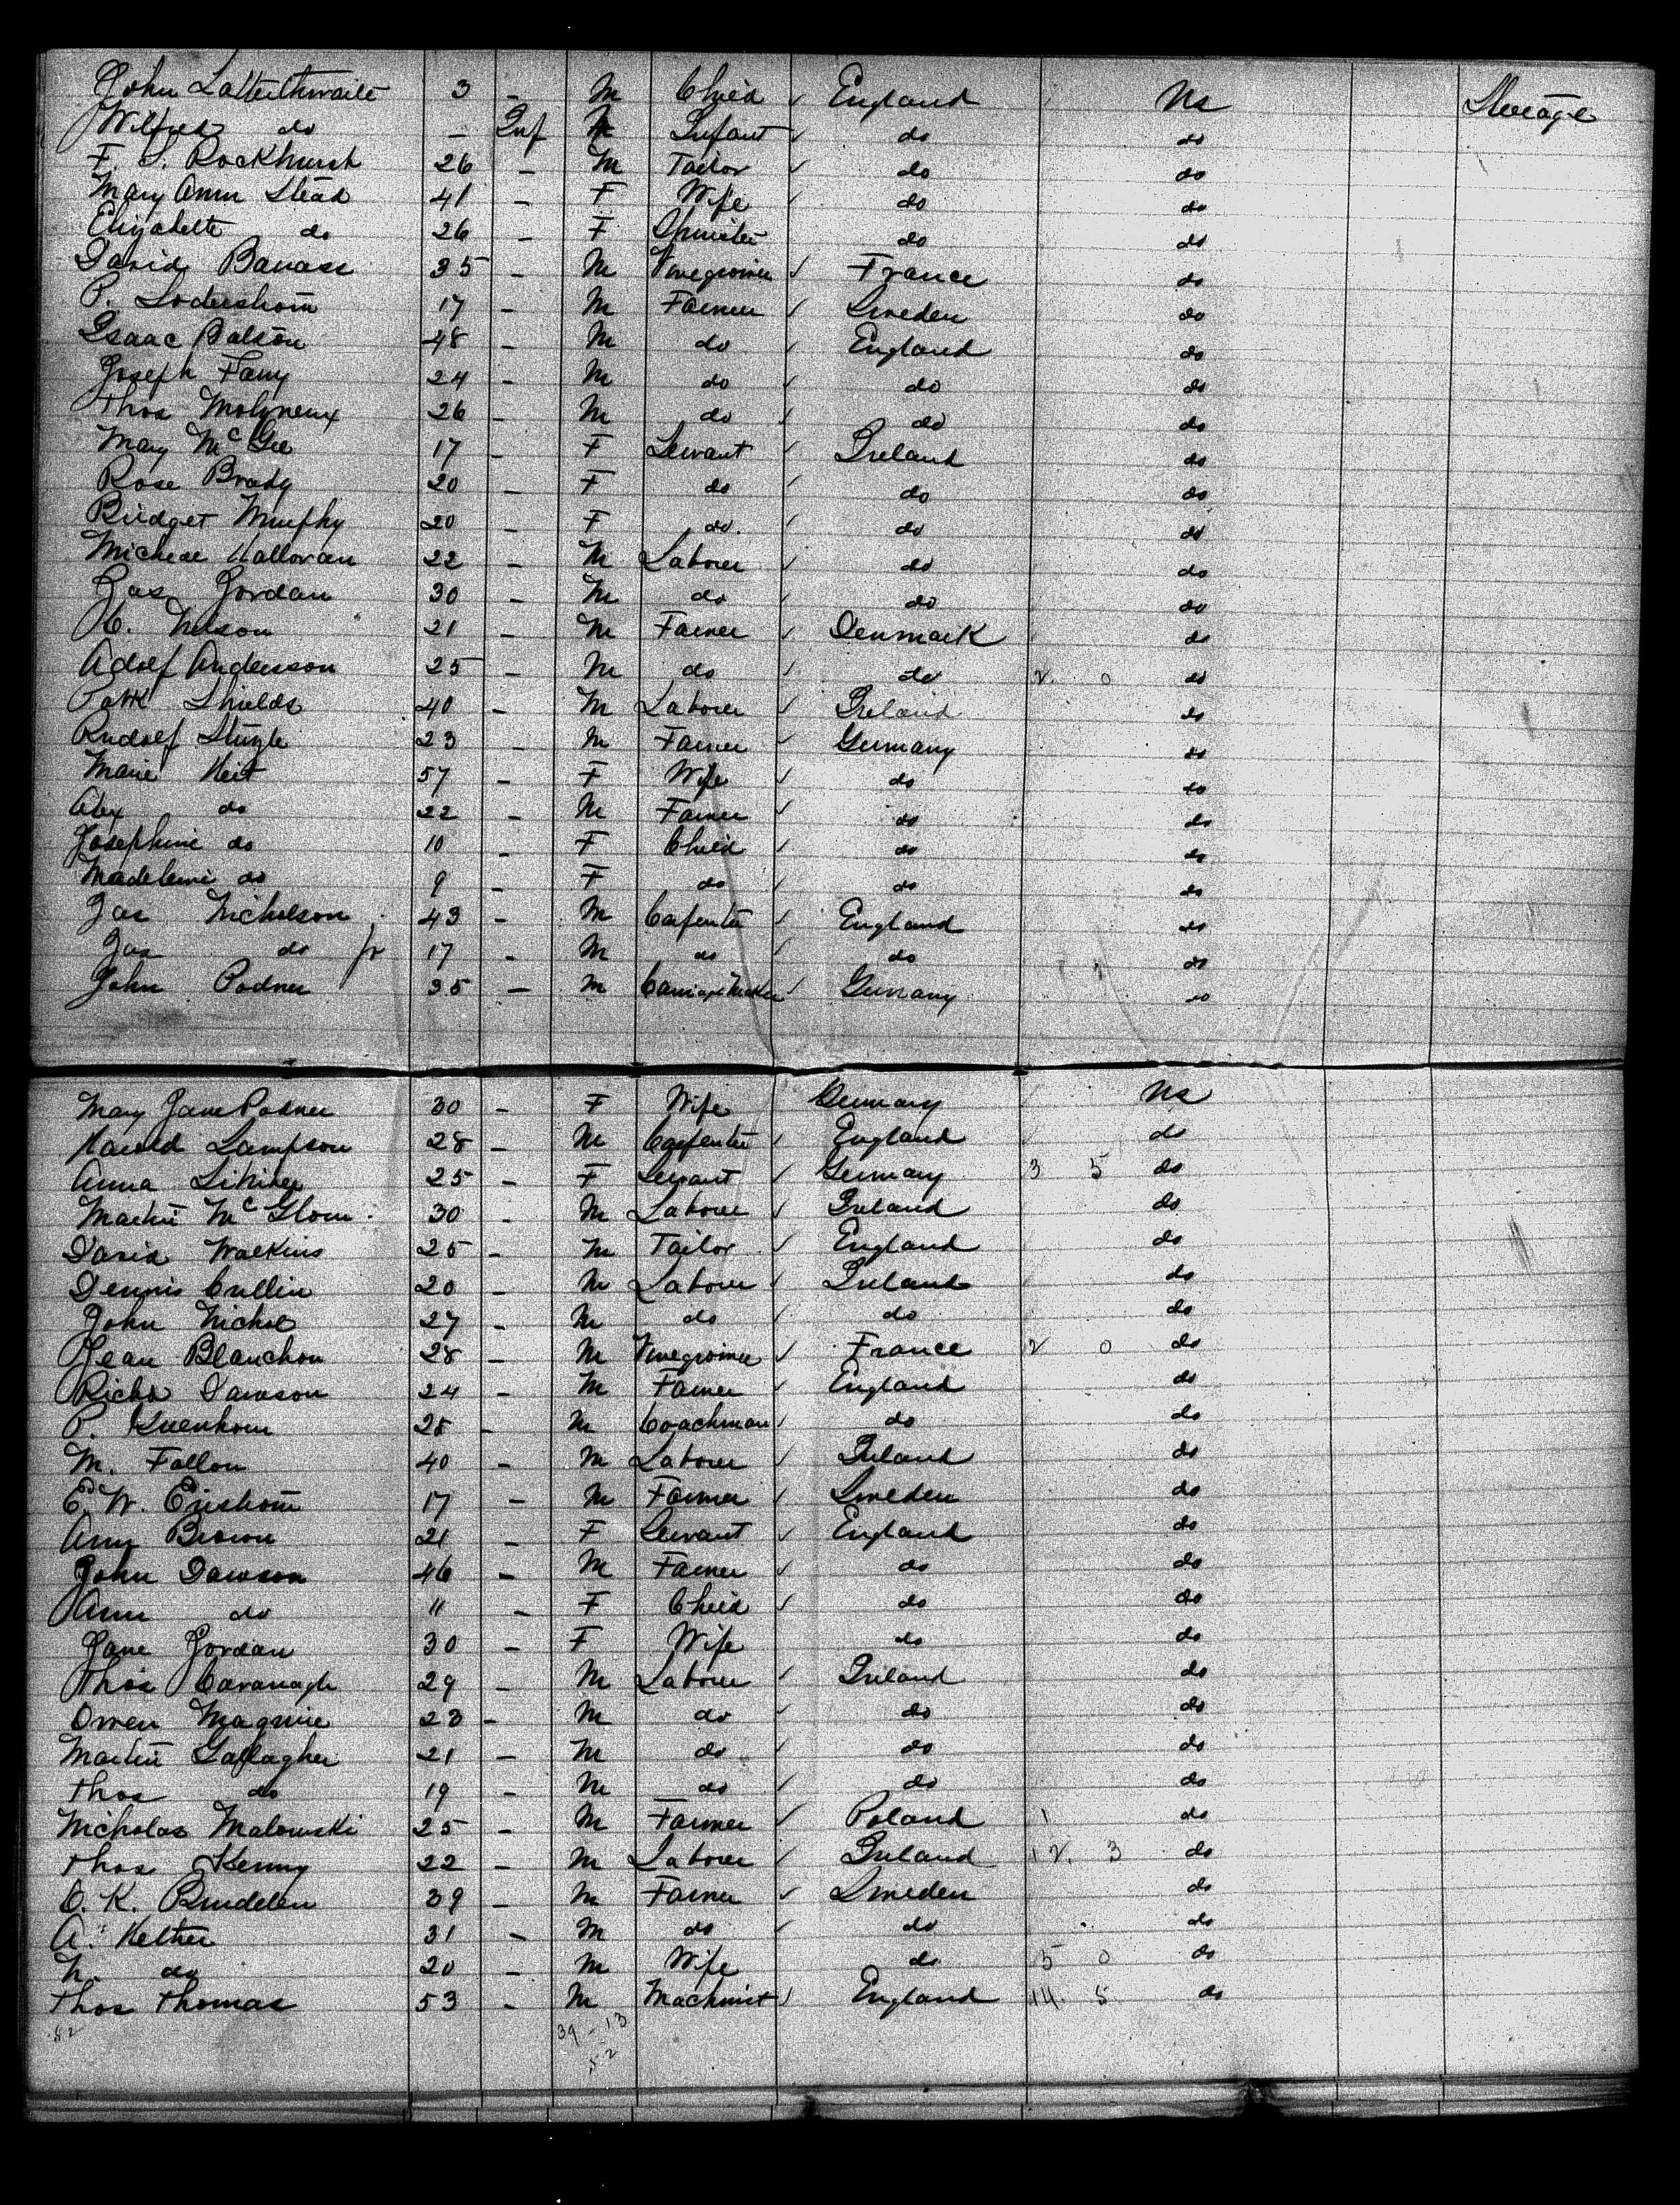 John Satterthwaite 3 - M Child ✓ England Us Steerage
Wilfred do - Inf M Infant ✓ do do
F. S. Rockhurst 26 - M Tailor ✓ do do
Mary Ann Stead 41 - F Wife do do
Elizabeth do 26 - F Spinster do do
David 35 - M Vinegrower ✓ France do
P. Sodershom 17 - M Farmer ✓ Sweden do
Isaac Balson 48 - M do ✓ England do
Joseph Fany 24 - M do ✓ do do
Thos Molyneux 26 - M do ✓ do do
Mary McGee 17 - F Servant ✓ Ireland do
Rose Brady 20 - F do ✓ do do
Bridget Murphy 20 - F do ✓ do do
Micheal Halloran 22 - M Laborer ✓ do do
Jas Jordan 30 - M do ✓ do do
C. Nelson 21 - M Farmer ✓ Denmark do
Adolf Andersson 25 - M do ✓ do 2 0 do
Patk Shields 40 - M Laborer ✓ Ireland do
Rudolf 23 - M Farmer ✓ Germany do
Marie Heit 57 - F Wife ✓ do do
Alex do 22 - M Farmer ✓ do do
Josephine do 10 - F Child ✓ do do
Madeleine do 9 - F do ✓ do do
Jas Nicholson 43 - M Carpenter ✓ England do
Jas do jr 17 - M do ✓ do do
John Podner 35 - M Carriage Maker ✓ Germany do
Mary Jane Podner 30 - F Wife Germany Us
Harold Lampson 28 - M Carpenter ✓ England do
Anna 25 - F Servant ✓ Germany 3 5 do
Martin McGloin 30 - M Laborer ✓ Ireland do
David Watkins 25 - M Tailor ✓ England do
Dennis Cullin 20 - M Laborer ✓ Ireland do
John Nichol 27 - M do do do
Jean Blanchon 28 - M Vinegrower ✓ France 2 0 do
Richd Dawson 24 - M Farmer ✓ England do
P. 28 - M Coachman ✓ do do
M. Fallon 40 - M Laborer ✓ Ireland do
E. W. Erishom 17 - M Farmer ✓ Sweden do
Amy Brown 21 - F Servant ✓ England do
John Dawson 46 - M Farmer ✓ do do
Ann do 11 - F Child ✓ do do
Jane Jordan 30 - F Wife do do
Thos Cavanagh 29 - M Laborer ✓ Ireland do
Owen Maguire 23 - M do ✓ do do
Martin Gallagher 21 - M do ✓ do do
Thos do 19 - M do ✓ do do
Nicholas Malowski 25 - M Farmer ✓ Poland 1 do
Thos Kenny 22 - M Laborer ✓ Ireland 12. 3 do
O. K. Brudelen 39 - M Farmer ✓ Sweden do
A. Kether 31 - M do ✓ do do
N. do 20 - M Wife do 5 0 do
Thos Thomas 53 - M Machinist ✓ England 14. 5 do
52 39 - 13
52